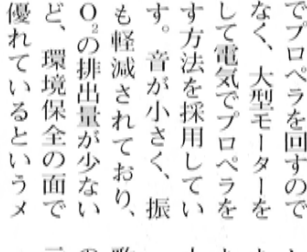 でプロペラを回すので
なく、大型モーターを
して電気でプロペラを
す方法を採用してい
す。音が小さく、振
も軽減されており、
O₂の排出量が少ない
ど、環境保全の面で
優れているというメ